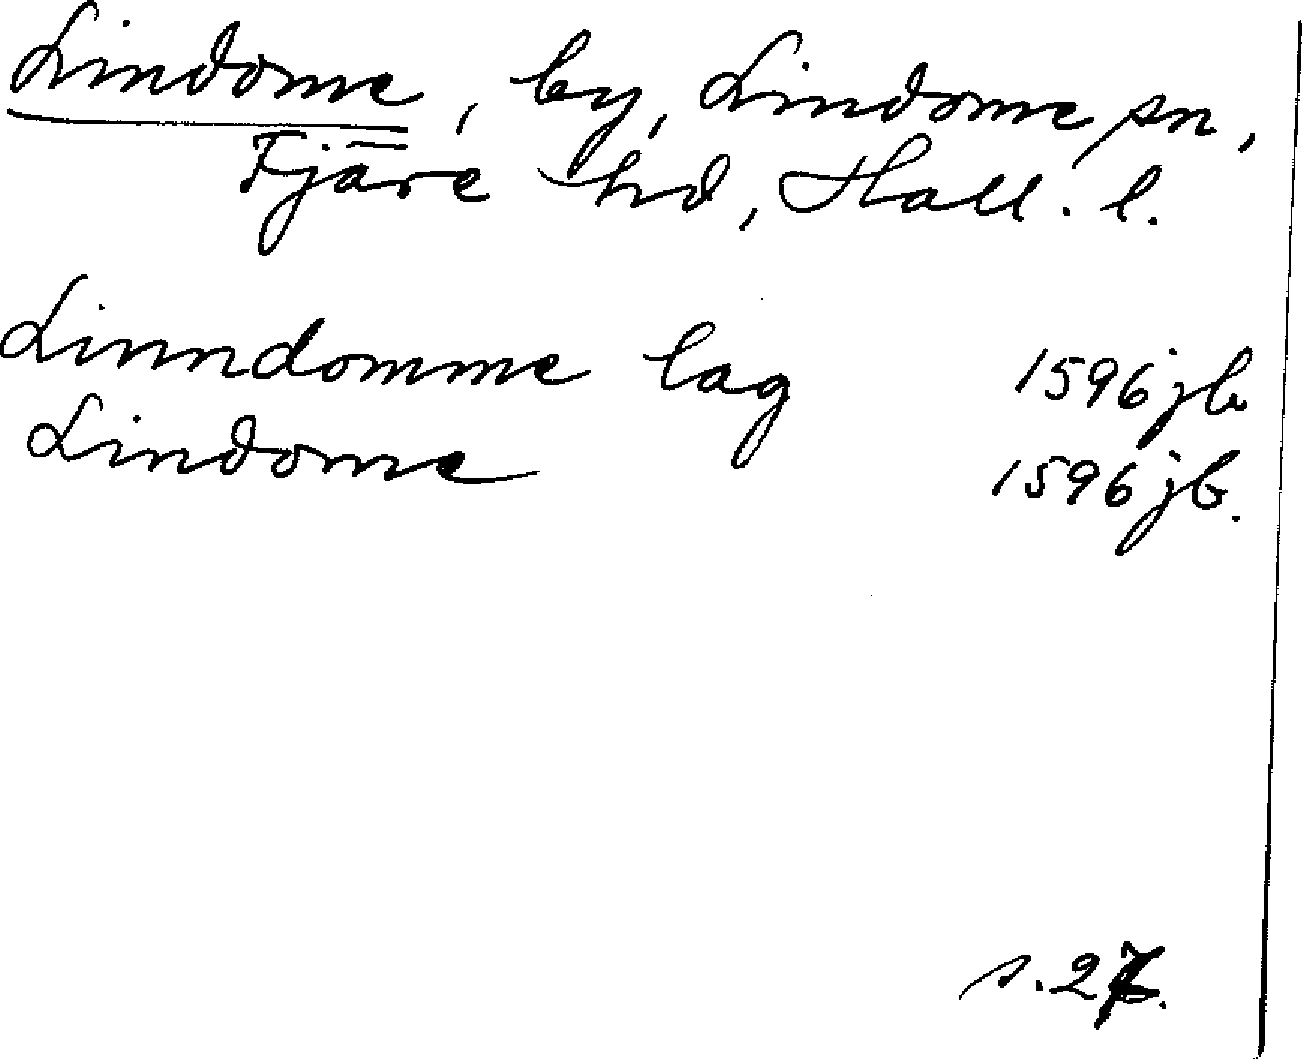 Lindome, by, Lindome sn,
Fjäre hd, Hall. l.
Linndomme lag 1596 jb
Lindome 1596 jb.
s. 27.